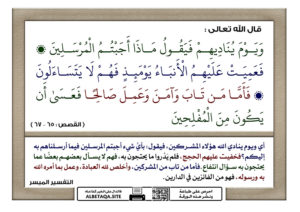 قال الله تعالى :
وَيَوْمَ يُنَادِيهِمْ فَيَقُولُ مَاذَا أَجَبْتُمُ الْمُرْسَلِينَ
فَعَمِيَتْ عَلَيْهِمُ الْأَنْبَاءُ يَوْمَئِذٍ فَهُمْ لَا يَتَسَاءَلُونَ
فَأَمَّا مَن تَابَ وَآمَنَ وَعَمِلَ صَالِحًا فَعَسَى أَن
يَكُونَ مِنَ الْمُفْلِحِينَ
( القصص : ٦٥ - ٦٧ )
أي ويوم ينادي الله هؤلاء المشركين، فيقول: بأيِّ شيء أجبتم المرسلين فيما أرسلناهم به
إليكم؟ فخفيت عليهم الحجج، فلم يدروا ما يحتجون به، فهم لا يسأل بعضهم بعضًا عما
يحتجون به سؤال انتفاع. فأما من تاب من المشركين، وأخلص لله العبادة، وعمل بما أمره الله
به ورسوله، فهو من الفائزين في الدارين.
التفسير الميسر
احرص على طباعة
ونشر هذه الورقة
ALBETAQA.SITE